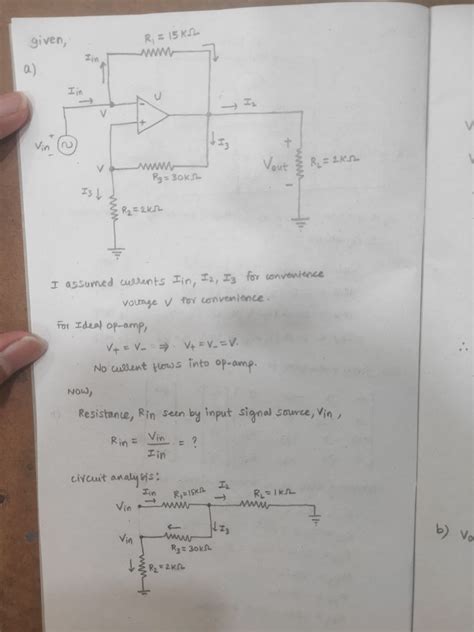 given,
a)
R₁ = 15KΩ
Iin
Iin
U
V
-
+
I₂
Vin
+
-
V
I₃
R₃ = 30KΩ
Vout
+
-
RL = 2KΩ
I₃
R₂ = 2KΩ
I assumed currents Iin, I₂, I₃ for convenience
voltage V for convenience.
For Ideal op-amp,
V₊ = V₋ ⇒ V₊ = V₋ = V.
No current flows into op-amp.
Now,
Resistance, Rin seen by input signal source, Vin,
Rin = Vin / Iin = ?
circuit analysis:
Vin Iin R₁=15KΩ I₂ RL = 1KΩ
Vin I₃
R₃ = 30KΩ
R₂ = 2KΩ
b) Vo